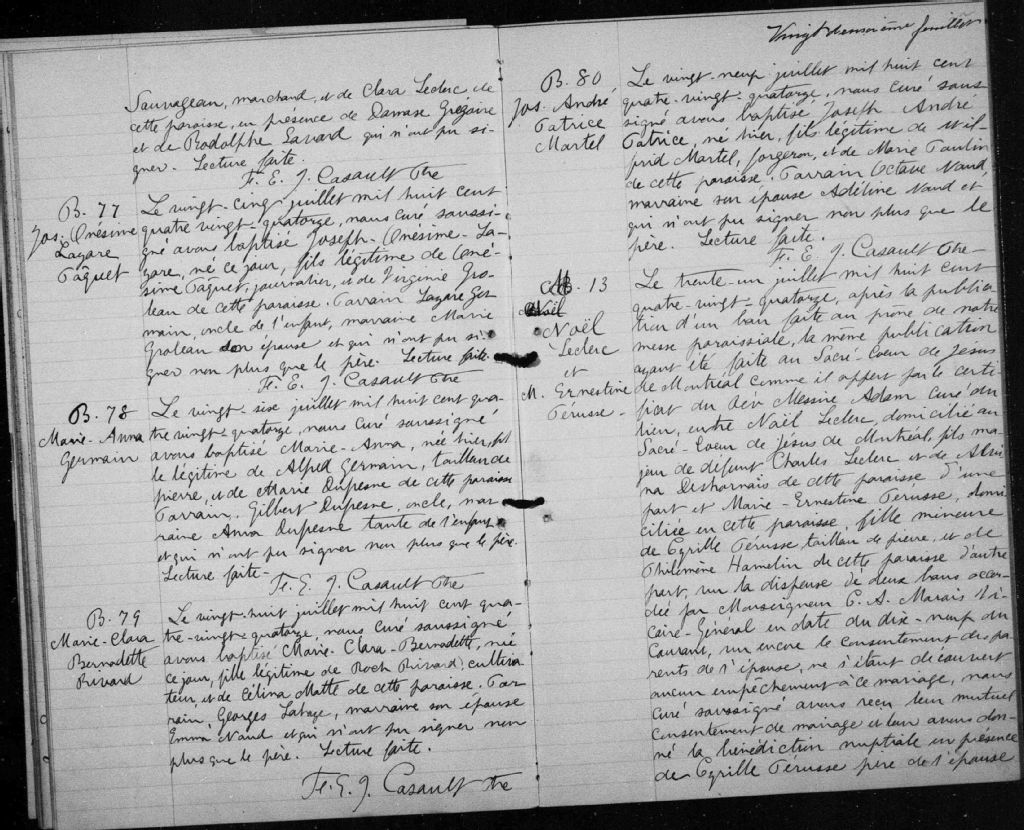 Sauvageau, marchand, et de Clara Leclerc, de
cette paroisse, en presence de Damase Grégoire
et de Rodolphe Savard qui n'ont pu si-
gner. Lecture faite.
F. E. J. Casault Ptre
B. 77
Jos. Onésime
Lazare
Pâquet
Le vingt-cinq juillet mil huit cent
quatre vingt-quatorze, nous curé soussi-
gné avons baptisé Joseph-Onésime-La-
zare, né ce jour, fils légitime de Oné-
sime Paquet, journalier, et de Virginie Gro-
leau de cette paroisse. Parrain Lazare Ger-
main, oncle de l'enfant, marraine Marie
Groleau son épouse et qui n'ont pu si-
gner non plus que le père. Lecture faite.
F. E. J. Casault Ptre
B. 78
Marie-Anna
Germain
Le vingt-six juillet mil huit cent qua-
tre vingt-quatorze, nous Curé soussigné
avons baptisé Marie-Anna, née hier, fil
le légitime de Alfred Germain, tailleur de
pierre, et de Marie Dufresne de cette paroisse
Parrain Gilbert Dufresne, oncle, mar-
raine Anna Dufresne tante de l'enfant
et qui n'ont pu signer non plus que le père.
Lecture faite-
F. E. J. Casault Ptre
B. 79
Marie-Clara
Bernadette
Rivard
Le vingt-huit juillet mil huit cent qua-
tre-vingt-quatorze, nous Curé soussigné
avons baptisé Marie-Clara-Bernadette, née
ce jour, fille légitime de Roch Rivard, cultiva
teur, et de Célina Matte de cette paroisse. Par
rain, Georges Lesage, marraine son épouse
Emma Naud et qui n'ont pu signer non
plus que le père. Lecture faite.
F. E. J. Casault Ptre
Vingt deuxième feuillet
B. 80
Jos. André
Patrice
Martel
Le vingt-neuf juillet mil huit cent
quatre-vingt-quatorze, nous Curé sous
signé avons baptisé Joseph André
Patrice, né hier, fils légitime de Wil-
frid Martel, forgeron, et de Marie Paulin
de cette paroisse. Parrain Octave Naud,
marraine son épouse Adéline Naud et
qui n'ont pu signer non plus que le
père. Lecture faite.
F. E. J. Casault Ptre
M. 13
Noël
Leclerc
et
M. Ernestine
Pérusse-
Le trente-un juillet mil huit cent
quatre-vingt-quatorze, après la publica
tion d'un ban faite au prone de notre
messe paroissiale, la même publication
ayant été faite au Sacré-Coeur de Jésus
de Montréal comme il appert par le certi-
ficat du Rév Messire Adam curé du
lieu, entre Noël Leclerc, domicilié au
Sacré-Coeur de Jésus de Montréal, fils ma-
jeur de défunt Charles Leclerc et de
Desharnais de cette paroisse d'une
part et Marie-Ernestine Perusse, domi
ciliée en cette paroisse, fille mineure
de Cyrille Pérusse tailleur de pierre, et de
Philomène Hamelin de cette paroisse d'autre
part, vu la dispense de deux bans accor-
dée par Monseigneur C. A. Marois Vi-
caire-Général en date du dix-neuf du
Courant, vu encore le consentement des pa
rents de l'épouse, ne s'étant découvert
aucun empêchement à ce mariage, nous
Curé soussigné avons reçu leur mutuel
consentement de mariage et leur avons don-
né la bénédiction nuptiale en présence
de Cyrille Pérusse père de l'épouse